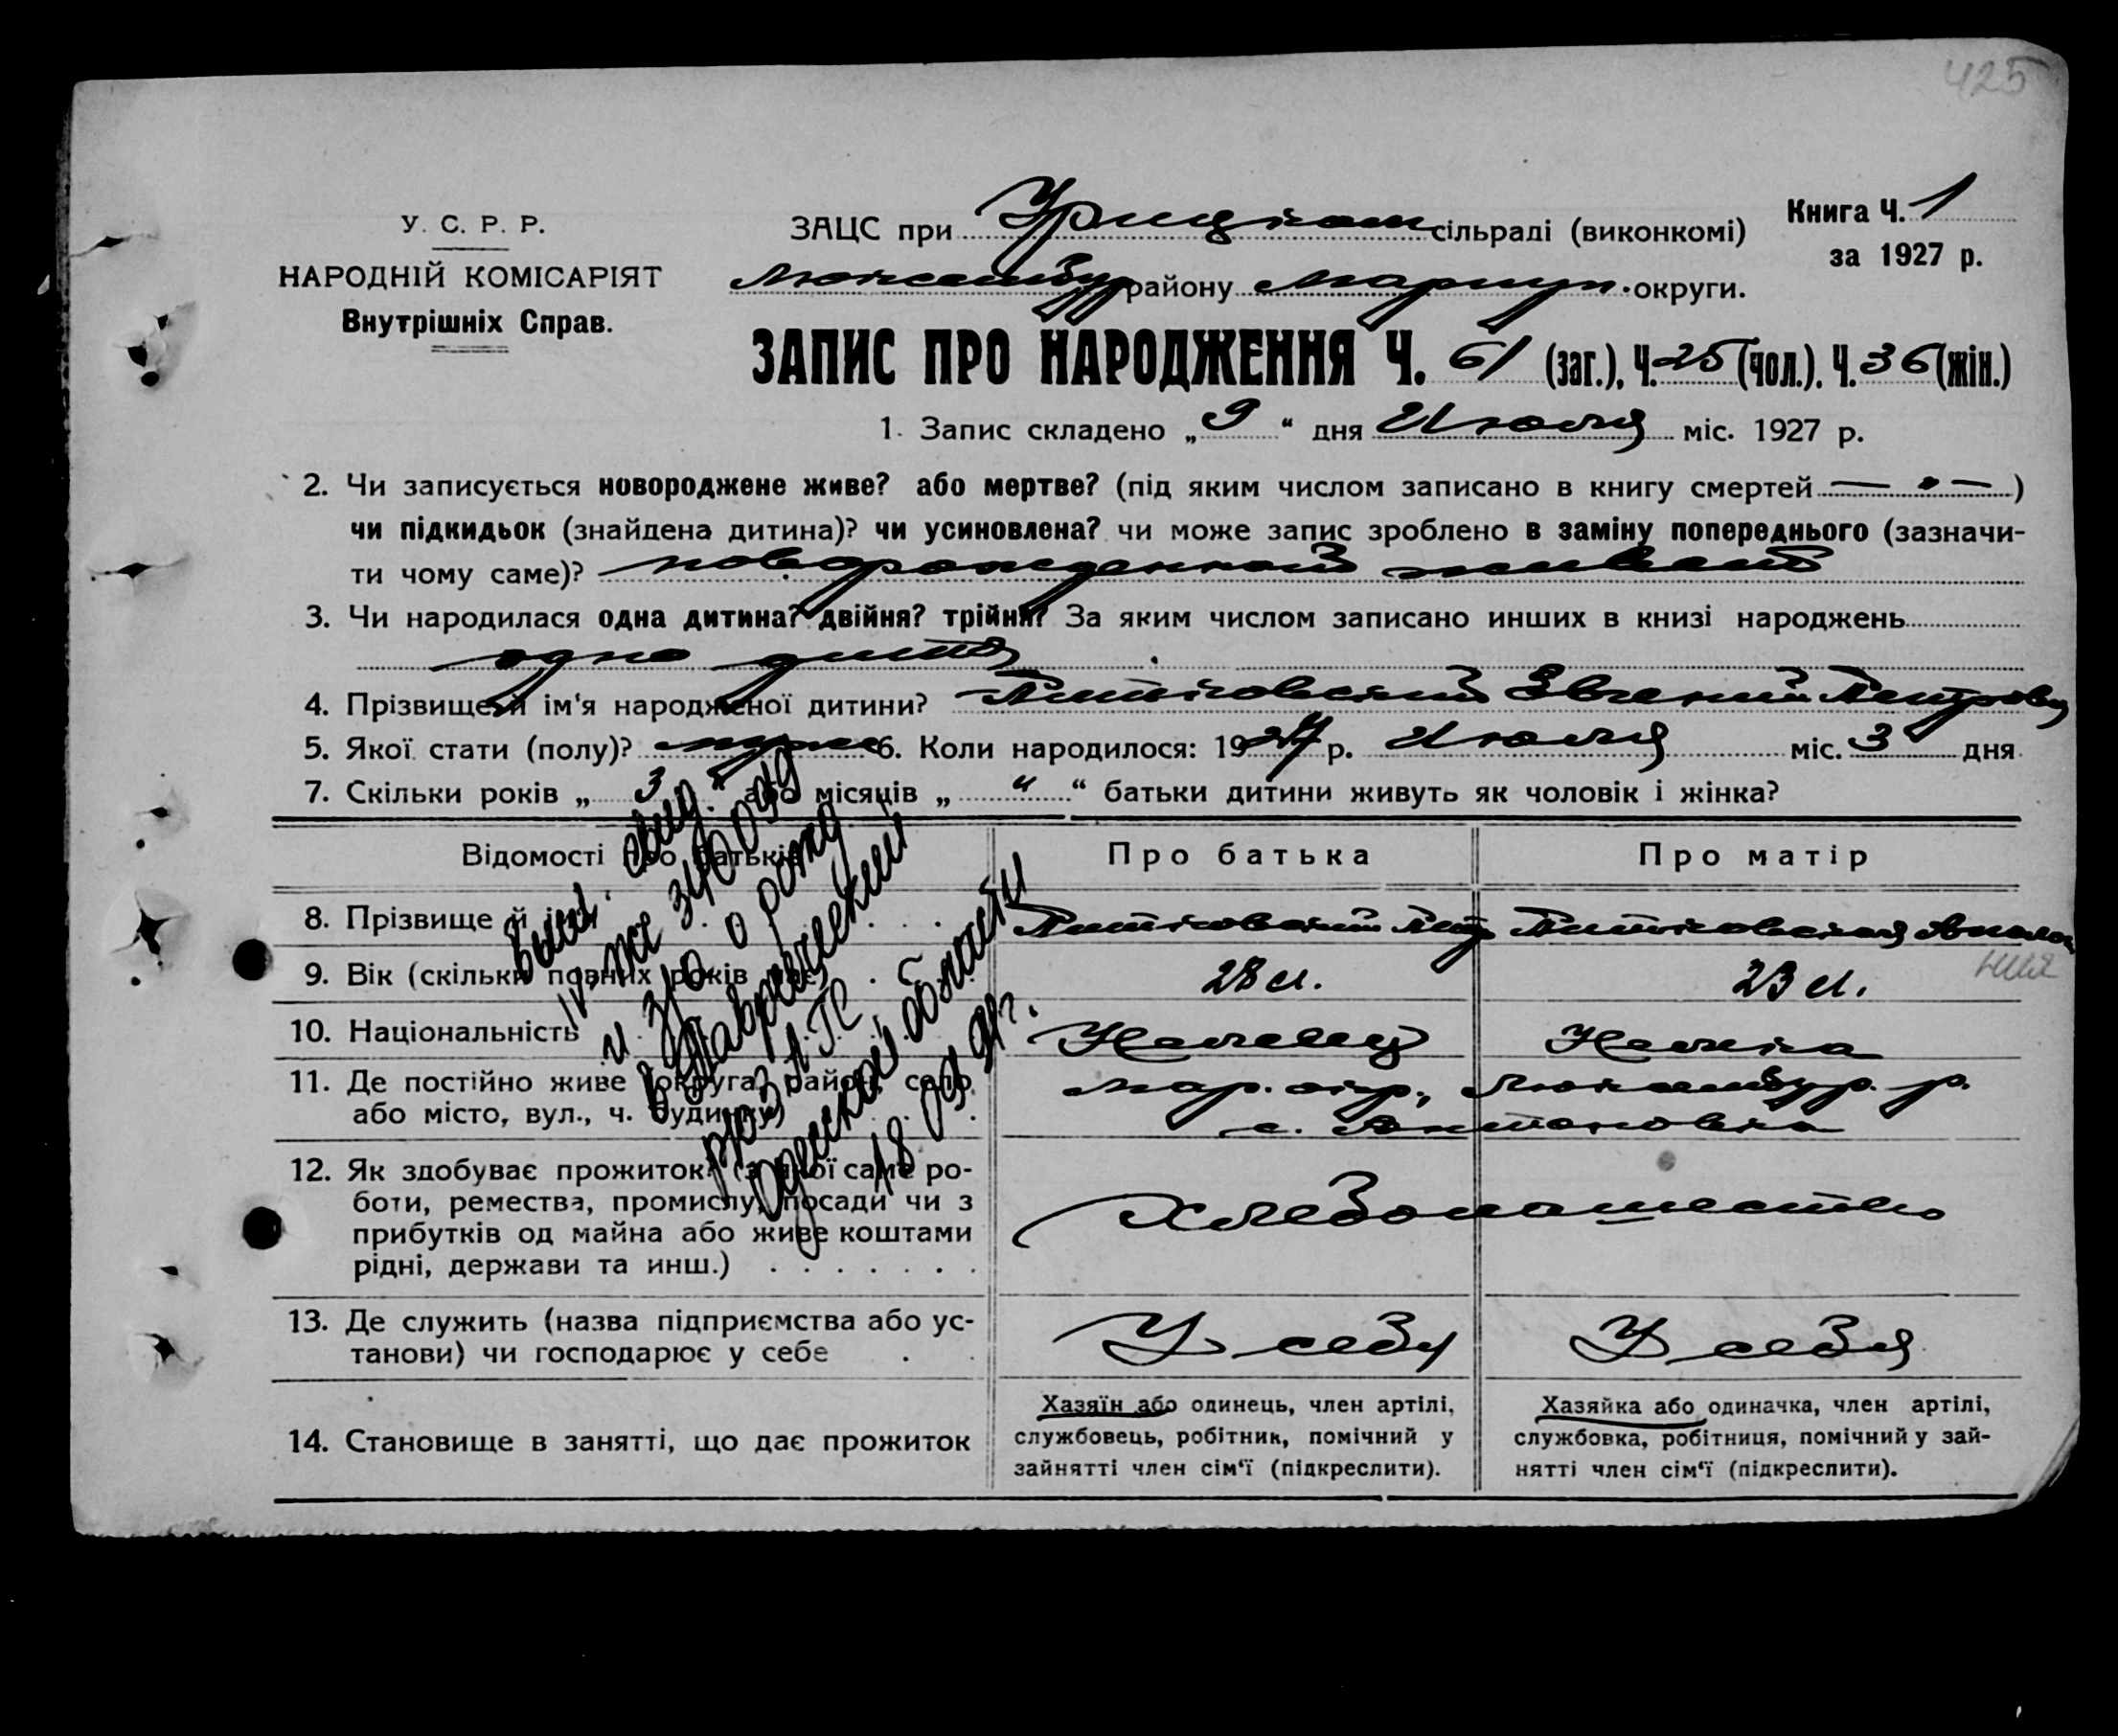 425
У. С. Р. Р.
НАРОДНІЙ КОМІСАРІЯТ
Внутрішніх Справ.
ЗАЦС при Урицком сільраді (виконкомі)
Люксембур району Мариуп. округи.
Книга Ч. 1
за 1927 р.
ЗАПИС ПРО НАРОДЖЕННЯ Ч. 61 (заг.), Ч. 25 (чол.), Ч. 36 (жін.)
1. Запис складено „ 9 “ дня Июля міс. 1927 р.
2. Чи записується новороджене живе? або мертве? (під яким числом записано в книгу смертей — • — )
чи підкидьок (знайдена дитина)? чи усиновлена? чи може запис зроблено в заміну попереднього (зазначи-
ти чому саме)? новорожденной
3. Чи народилася одна дитина? двійня? трійня? За яким числом записано инших в книзі народжень
одно дитя
4. Прізвище й ім‘я народженої дитини? Евгений Петрович
5. Якої стати (полу)? 6. Коли народилося: 1927 р. Июля міс. 3 дня
7. Скільки років „ 3 або місяців „ “ батьки дитини живуть як чоловік і жінка?
Відомості про батьків
Про батька
Про матір
8. Прізвище й ім‘я
9. Вік (скільки повних років має)
28 л.
23 л.
10. Національність
Немец
Немка
11. Де постійно живе (округа, район, село
або місто, вул., ч. будинку)
Мар. окр., Люксембур. р.
с. Антоновка
12. Як здобуває прожиток (з якої саме ро-
боти, ремества, промислу, посади чи з
прибутків од майна або живе коштами
рідні, держави та инш.)
Хлебопашество
13. Де служить (назва підприємства або ус-
танови) чи господарює у себе
У себя
У себя
14. Становище в занятті, що дає прожиток
Хазяїн або одинець, член артілі,
службовець, робітник, помічний у
зайнятті член сім‘ї (підкреслити).
Хазяйка або одиначка, член артілі,
службовка, робітниця, помічний у зай-
нятті член сім‘ї (підкреслити).
о рожд
Одесской области